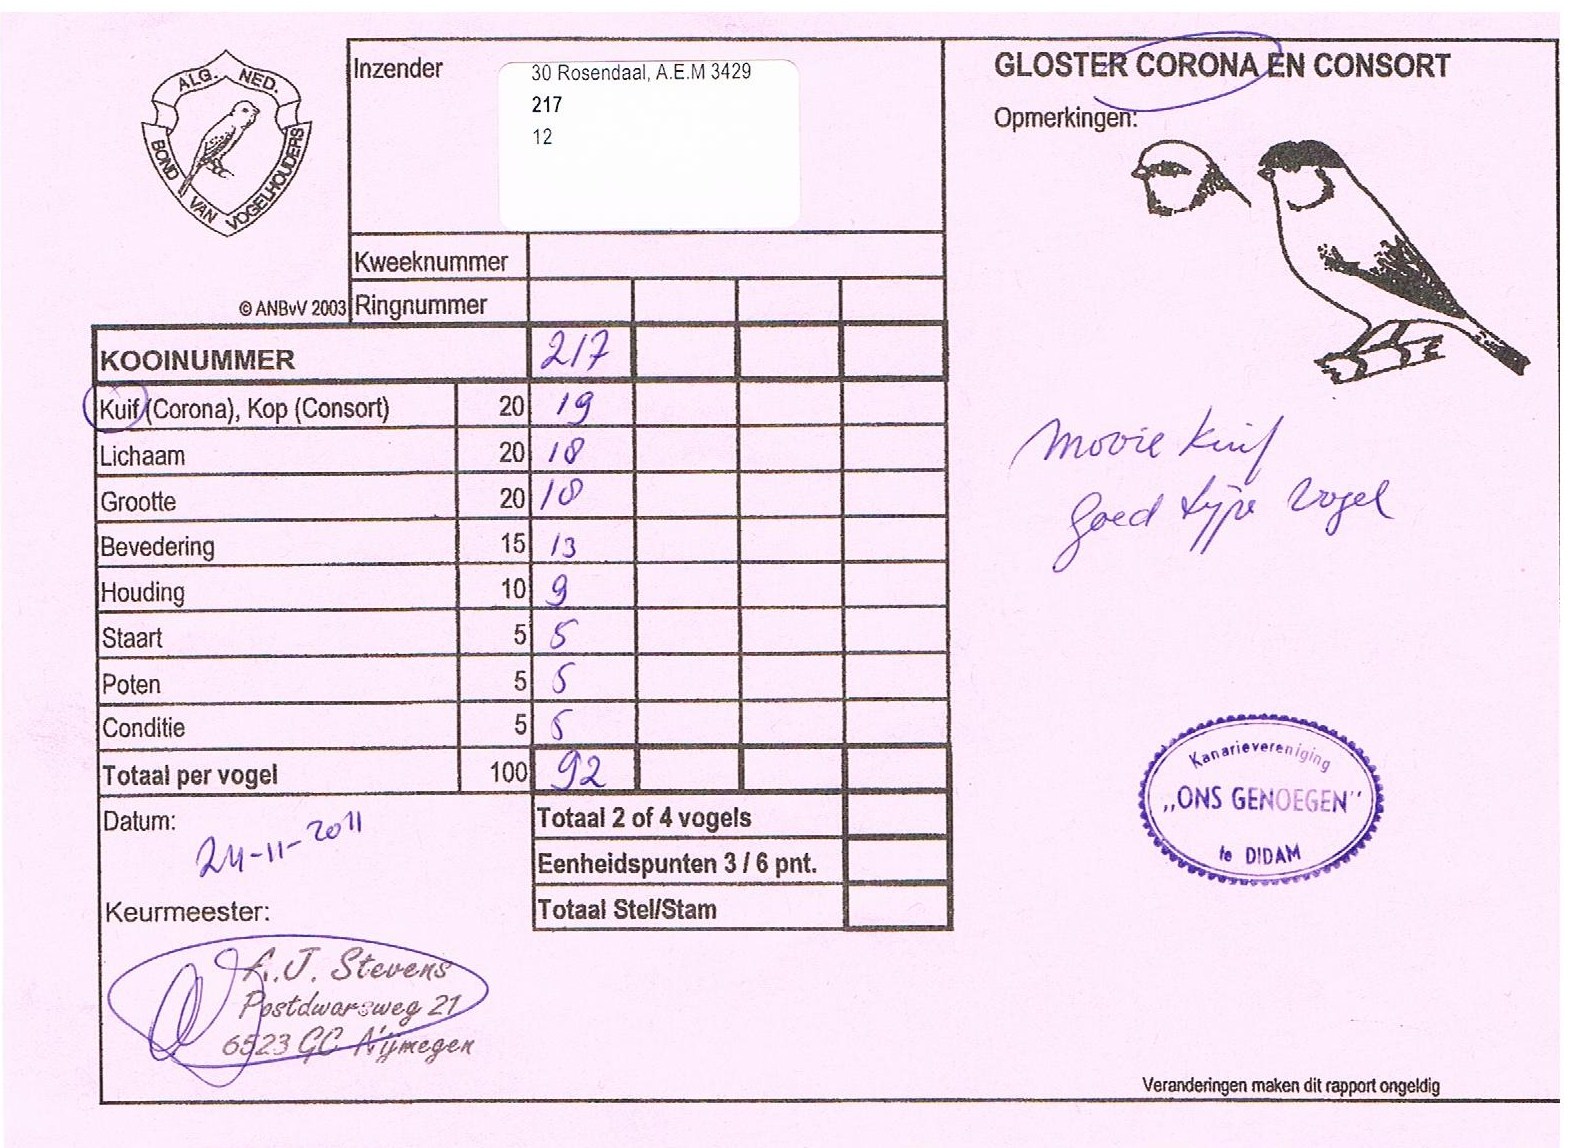 ALG. NED.
BOND VAN VOGELHOUDERS
© ANBvV 2003
Inzender
30 Rosendaal, A.E.M 3429
217
12
Kweeknummer
Ringnummer
KOOINUMMER 217
Kuif (Corona), Kop (Consort) 20 19
Lichaam 20 18
Grootte 20 18
Bevedering 15 13
Houding 10 9
Staart 5 5
Poten 5 5
Conditie 5 5
Totaal per vogel 100 92
Totaal 2 of 4 vogels
Eenheidspunten 3 / 6 pnt.
Totaal Stel/Stam
Datum:
24-11-2011
Keurmeester:
A.J. Stevens
Postdwarsweg 21
6523 GC Nijmegen
GLOSTER CORONA EN CONSORT
Opmerkingen:
Mooie Kuif
goed type vogel
Kanarievereniging
„ONS GENOEGEN”
te DIDAM
Veranderingen maken dit rapport ongeldig